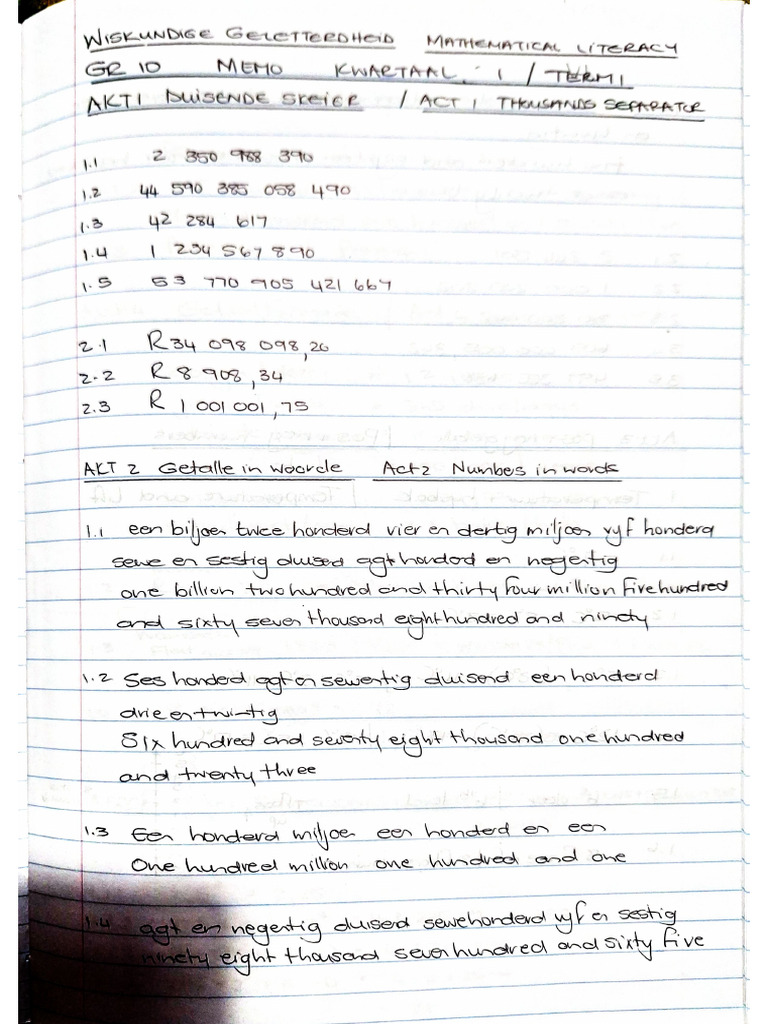 WISKUNDIGE GELETTERDHEID MATHEMATICAL LITERACY
GR 10 MEMO KWARTAAL 1 / TERM 1
AKT 1 DUISENDE SKEIER / ACT 1 THOUSANDS SEPARATOR
1.1 2 350 988 390
1.2 44 590 385 058 490
1.3 42 284 617
1.4 1 234 567 890
1.5 53 770 905 421 667
2.1 R34 098 098,26
2.2 R 8 908,34
2.3 R 1 001 001,75
AKT 2 Getalle in woorde Act 2 Numbes in words
1.1 een biljoen twee honderd vier en dertig miljoen vyf honderd
sewe en sestig duised agt honderd en negentig
one billion two hundred and thirty four million five hundred
and sixty seven thousand eight hundred and ninety
1.2 Ses honderd agt en sewentig duisend een honderd
drie en twintig
Six hundred and seventy eight thousand one hundred
and twenty three
1.3 Een honderd miljoen een honderd en een
One hundred million one hundred and one
1.4 agt en negentig duisend sewehonderd vyf en sestig
ninety eight thousand seven hundred and sixty five